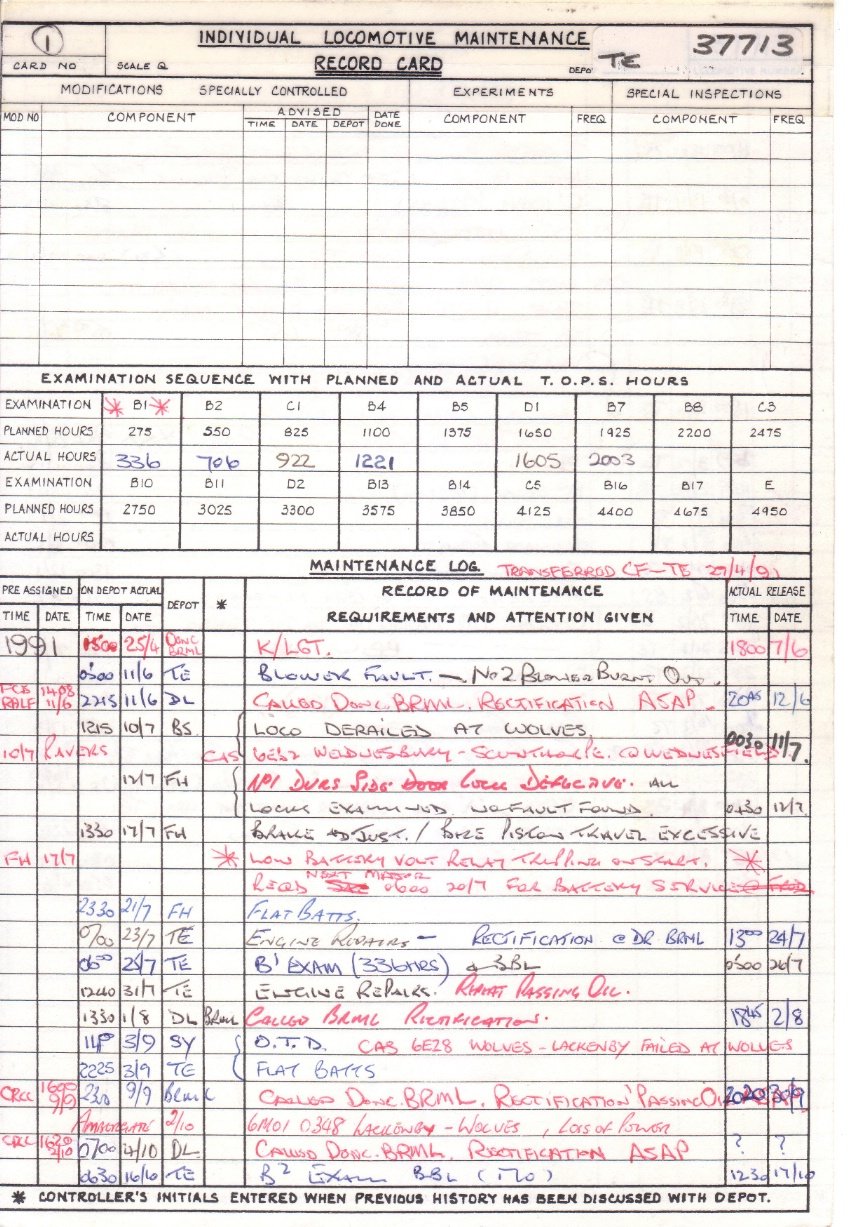 1
INDIVIDUAL LOCOMOTIVE MAINTENANCE
RECORD CARD
CARD NO SCALE Q DEPOT TE 37713
MODIFICATIONS SPECIALLY CONTROLLED EXPERIMENTS SPECIAL INSPECTIONS
MOD NO COMPONENT ADVISED DATE DONE COMPONENT FREQ COMPONENT FREQ
TIME DATE DEPOT
EXAMINATION SEQUENCE WITH PLANNED AND ACTUAL T.O.P.S. HOURS
EXAMINATION * B1 * B2 C1 B4 B5 D1 B7 B8 C3
PLANNED HOURS 275 550 825 1100 1375 1650 1925 2200 2475
ACTUAL HOURS 336 706 922 1221 1605 2003
EXAMINATION B10 B11 D2 B13 B14 C5 B16 B17 E
PLANNED HOURS 2750 3025 3300 3575 3850 4125 4400 4675 4950
ACTUAL HOURS
MAINTENANCE LOG. TRANSFERRED CF-TE 29/4/91
PRE ASSIGNED ON DEPOT ACTUAL DEPOT * RECORD OF MAINTENANCE ACTUAL RELEASE
TIME DATE TIME DATE REQUIREMENTS AND ATTENTION GIVEN TIME DATE
1991 1500 25/4 DONC BRML K/LGT. 1800 7/6
0500 11/6 TE BLOWER FAULT. - NO 2 BLOWER BURNT OUT.
1408 11/6 2215 11/6 DL CALLED DONC. BRML. RECTIFICATION ASAP. 2045 12/6
1215 10/7 BS LOCO DERAILED AT WOLVES,
10/7 CAS 6E32 WEDNESBURY - SCUNTHORPE. @ WEDNESFIELD 0030 11/7.
12/7 FH NO1 DVRS SIDE DOOR LOCK DEFECTIVE. ALL
LOCKS EXAMINED. NO FAULT FOUND. 0430 12/7
1330 17/7 FH BRAKE ADJUST. / PISTON TRAVEL EXCESSIVE
FH 17/7 * LOW BATTERY VOLT RELAY TRIPPING ON START. *
REQD 0600 20/7 FOR BATTERY SERVICE
2330 21/7 FH FLAT BATTS.
0700 23/7 TE ENGINE REPAIRS - RECTIFICATION @ DR BRML 1300 24/7
0600 25/7 TE B1 EXAM (336HRS) & BBL 0500 26/7
1240 31/7 TE ENGINE REPAIRS. PASSING OIL.
1330 1/8 DL BRML CALLED BRML RECTIFICATION. 1845 2/8
3/9 SY O.T.D. CAB 6E28 WOLVES - LACKENBY FAILED AT WOLVES
2225 3/9 TE FLAT BATTS
CRCC 1600 9/9 2330 9/9 BRML CALLED DONC. BRML. RECTIFICATION PASSING OIL
2/10 6M01 0348 LACKENBY - WOLVES, LOSS OF POWER
CRCC 0700 4/10 DL CALLED DONC. BRML. RECTIFICATION ASAP ? ?
0630 16/6 TE B2 EXAM BBL 1230 17/10
* CONTROLLER'S INITIALS ENTERED WHEN PREVIOUS HISTORY HAS BEEN DISCUSSED WITH DEPOT.